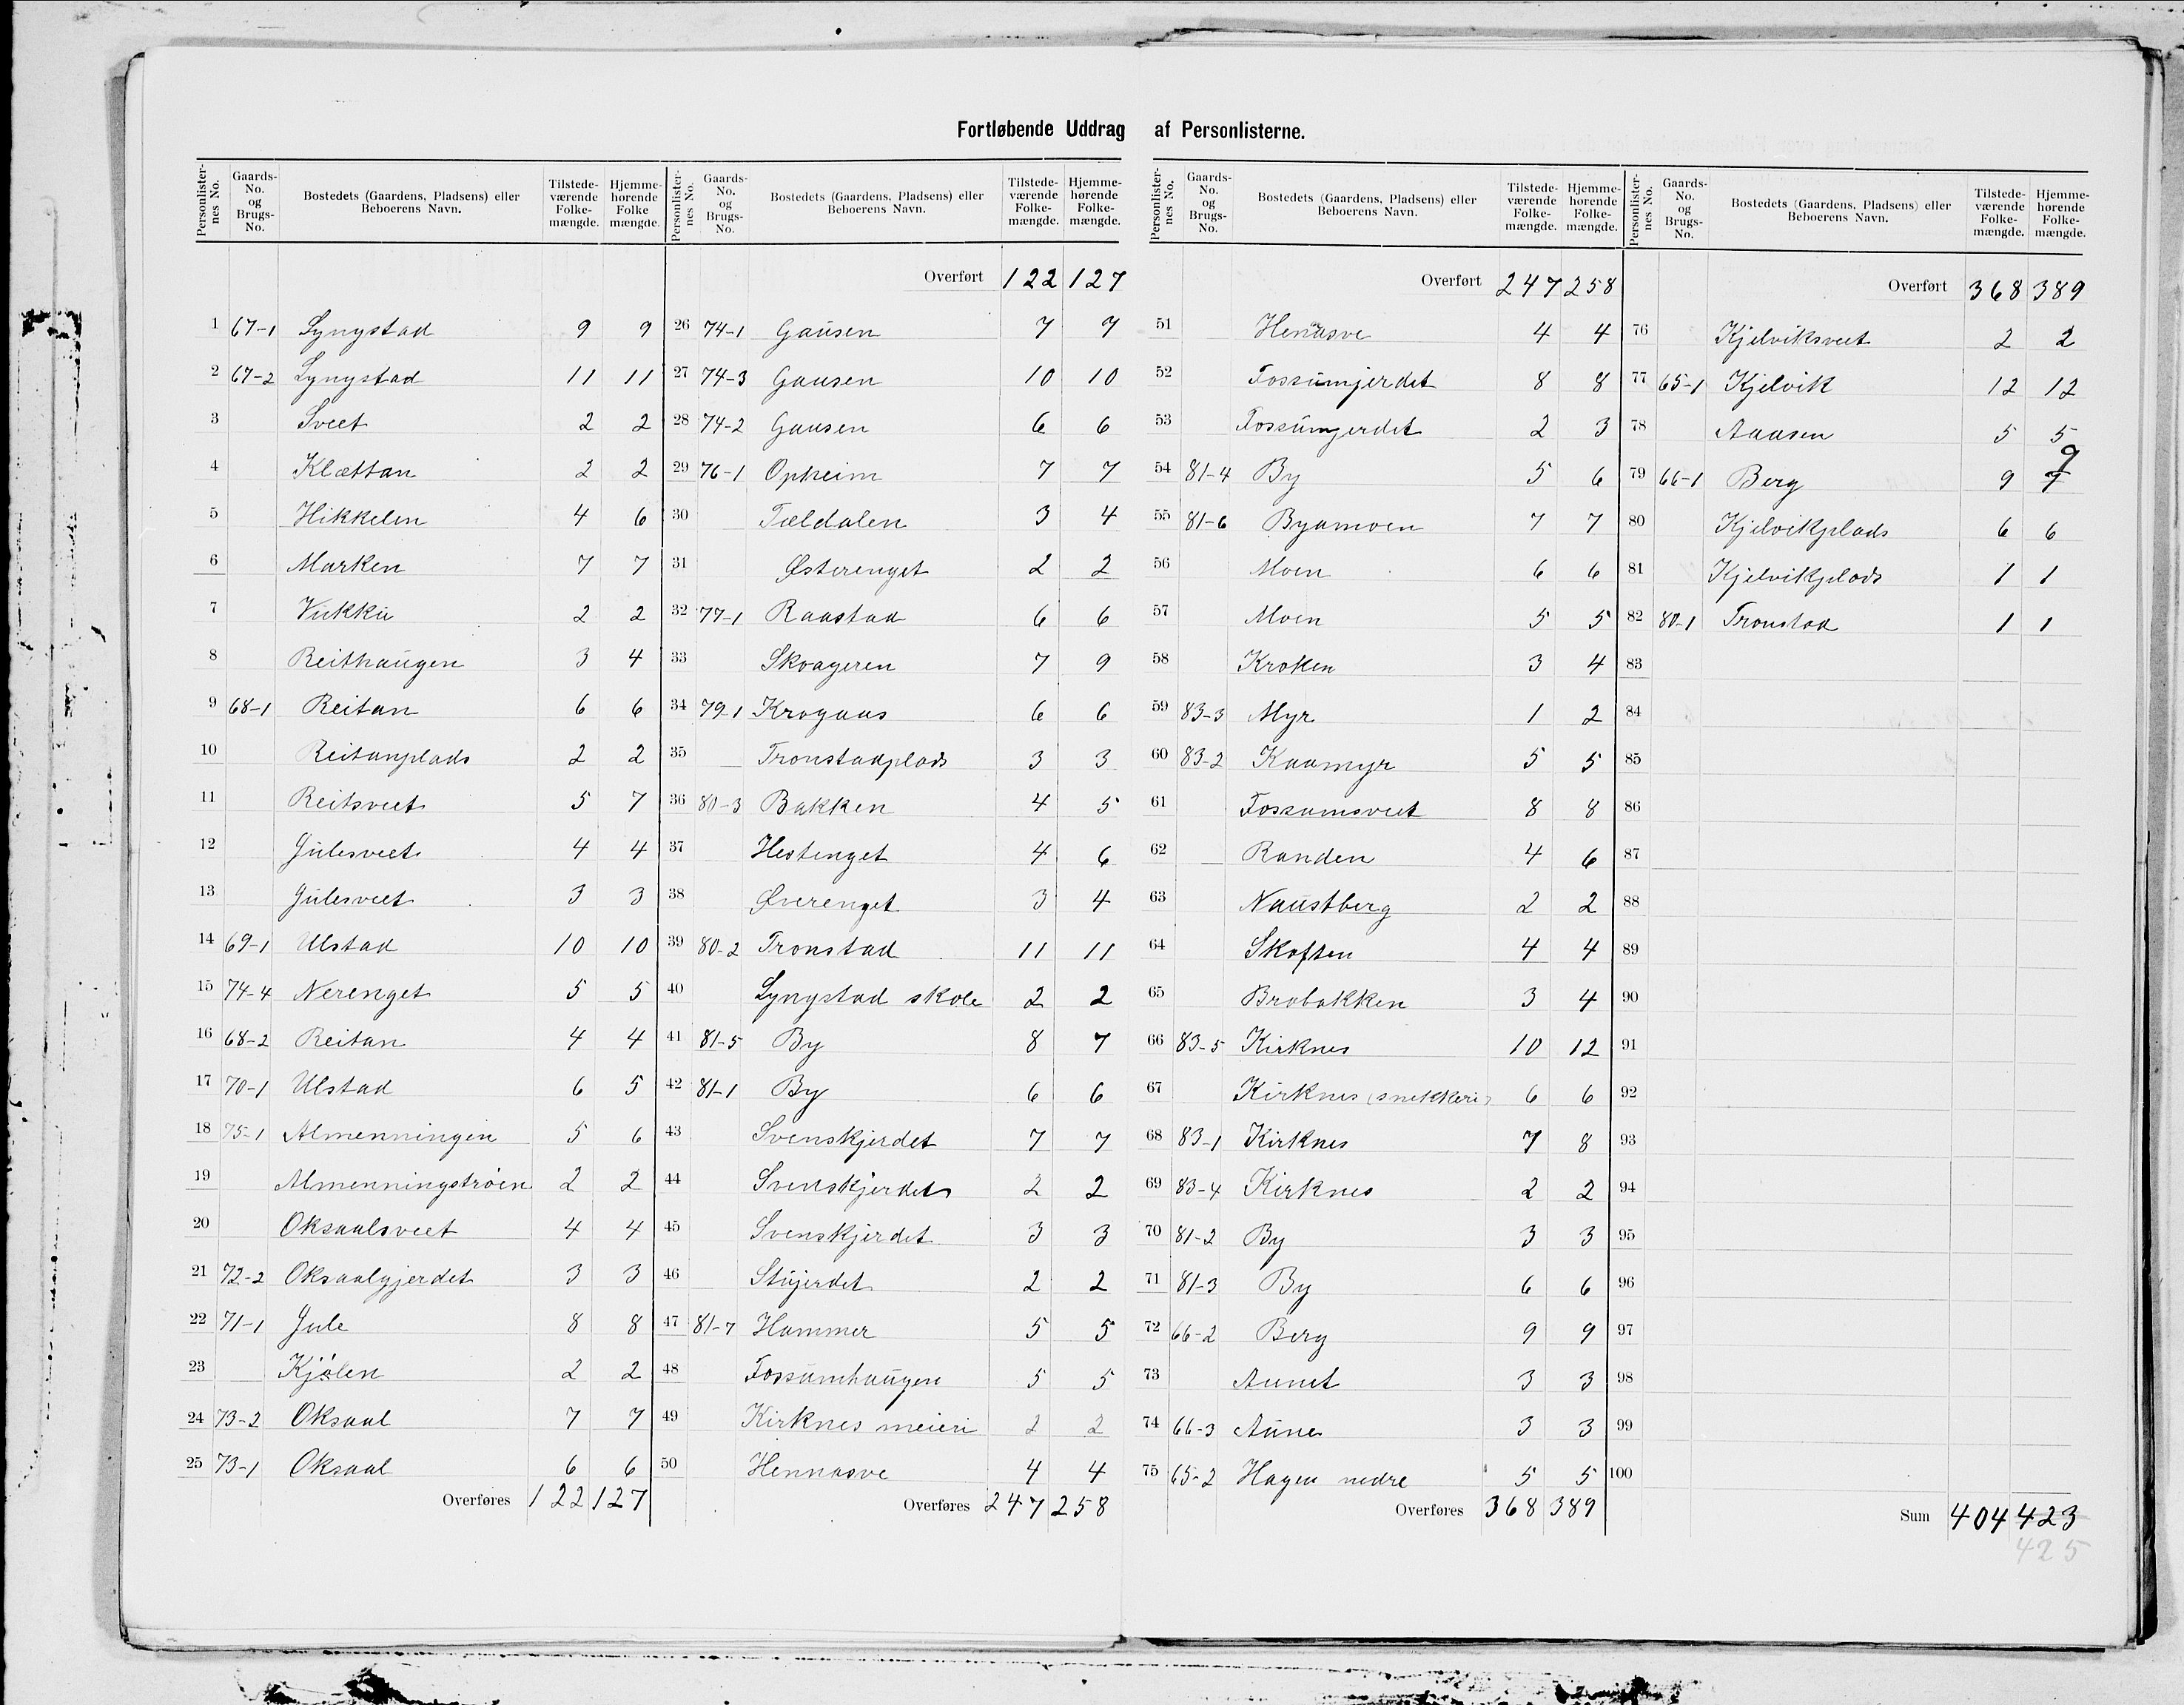 Fortløbende Uddrag af Personlisterne.
Personlisternes No. Gaards-No. og Brugs-No. Bostedets (Gaardens, Pladsens) eller Beboerens Navn. Tilstedeværende Folkemængde. Hjemmehørende Folkemængde.
1 67-1 Lyngstad 9 9
2 67-2 Lyngstad 11 11
3 Sveet 2 2
4 Klættan 2 2
5 Hikkelen 4 6
6 Marken 7 7
7 Vukku 2 2
8 Reithaugen 3 4
9 68-1 Reitan 6 6
10 Reitanplads 2 2
11 Reitsveet 5 7
12 Julesveet 4 4
13 Julesveet 3 3
14 69-1 Ulstad 10 10
15 74-4 Nerenget 5 5
16 68-2 Reitan 4 4
17 70-1 Ulstad 6 5
18 75-1 Almenningen 5 6
19 Almenningstrøen 2 2
20 Oksaalsveet 4 4
21 72-2 Oksaalgjerdet 3 3
22 71-1 Jule 8 8
23 Kjølen 2 2
24 73-2 Oksaal 7 7
25 73-1 Oksaal 6 6
Overføres 122 127
Personlisternes No. Gaards-No. og Brugs-No. Bostedets (Gaardens, Pladsens) eller Beboerens Navn. Tilstedeværende Folkemængde. Hjemmehørende Folkemængde.
Overført 122 127
26 74-1 Gausen 7 7
27 74-3 Gausen 10 10
28 74-2 Gausen 6 6
29 76-1 Opheim 7 7
30 Tældalen 3 4
31 Østerenget 2 2
32 77-1 Raastad 6 6
33 Skvageren 7 9
34 79-1 Krogaas 6 6
35 Tronstadplads 3 3
36 80-3 Bakken 4 5
37 Hestenget 4 6
38 Øverenget 3 4
39 80-2 Tronstad 11 11
40 Lyngstad skole 2 2
41 81-5 By 8 7
42 81-1 By 6 6
43 Svenskjerdet 7 7
44 Svenskjerdet 2 2
45 Svenskjerdet 3 3
46 Stujerdet 2 2
47 81-7 Hammer 5 5
48 Fossumhaugen 5 5
49 Kirknes meieri 2 2
50 Hennasve 4 4
Overføres 247 258
Personlisternes No. Gaards-No. og Brugs-No. Bostedets (Gaardens, Pladsens) eller Beboerens Navn. Tilstedeværende Folkemængde. Hjemmehørende Folkemængde.
Overført 247 258
51 Henasve 4 4
52 Fossumjerdet 8 8
53 Fossumjerdet 2 3
54 81-4 By 5 6
55 81-6 Byamoen 7 7
56 Moen 6 6
57 Moen 5 5
58 Kroken 3 4
59 83-3 Myr 1 2
60 83-2 Kaamyr 5 5
61 Fossumsveet 8 8
62 Randen 4 6
63 Naustberg 2 2
64 Skoften 4 4
65 Brobakken 3 4
66 83-5 Kirknes 10 12
67 Kirknes (snekkeri) 6 6
68 83-1 Kirknes 7 8
69 83-4 Kirknes 2 2
70 81-2 By 3 3
71 81-3 By 6 6
72 66-2 Berg 9 9
73 Aunet 3 3
74 66-3 Aune 3 3
75 65-2 Hagen nedre 5 5
Overføres 368 389
Personlisternes No. Gaards-No. og Brugs-No. Bostedets (Gaardens, Pladsens) eller Beboerens Navn. Tilstedeværende Folkemængde. Hjemmehørende Folkemængde.
Overført 368 389
76 Kjelviksveet 2 2
77 65-1 Kjelvik 12 12
78 Aaasen 5 5
79 66-1 Berg 9 7 9
80 Kjelvikplads 6 6
81 Kjelvikplads 1 1
82 80-1 Tronstad 1 1
83
84
85
86
87
88
89
90
91
92
93
94
95
96
97
98
99
100
Sum 404 423
425